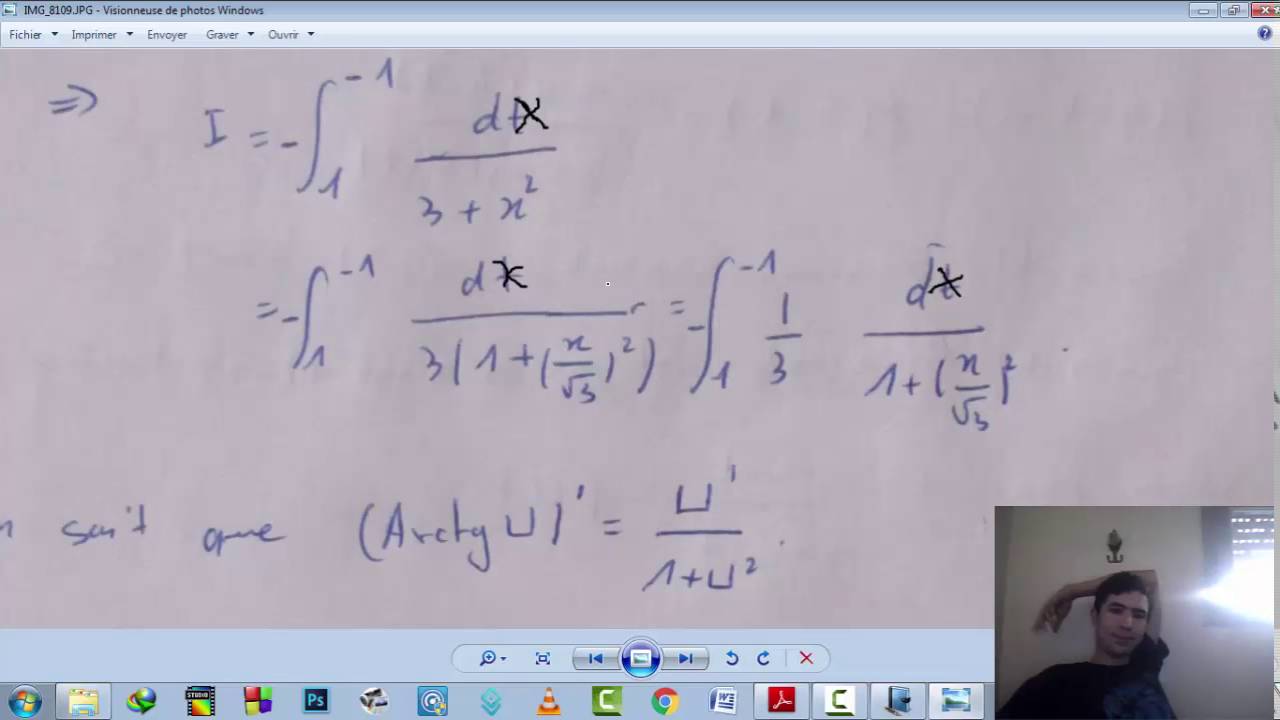 IMG_8109.JPG - Visionneuse de photos Windows
Fichier Imprimer Envoyer Graver Ouvrir
⇒ I = -∫₁⁻¹ dx / (3 + x²)
= -∫₁⁻¹ dx / (3(1 + (x/√3)²)) = -∫₁⁻¹ 1/3 dx / (1 + (x/√3)²).
sait que (Arctg U)' = U' / (1 + U²).
STUDIO
Ps
C
W
C